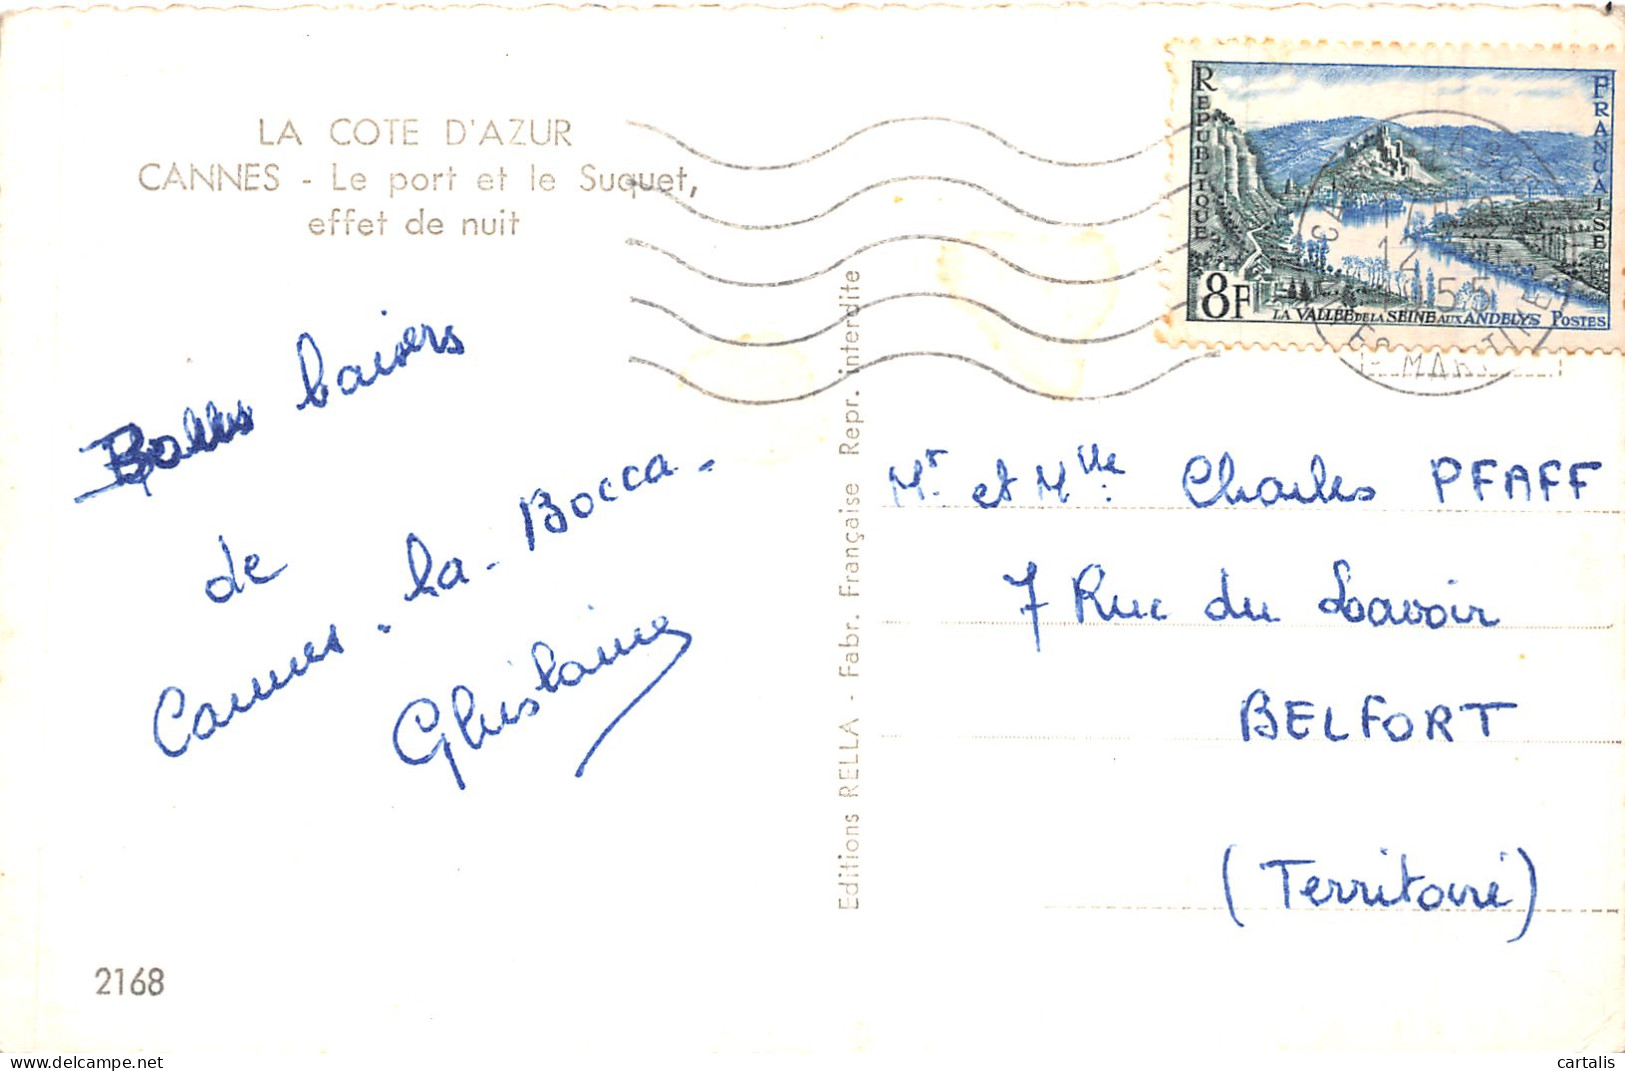 LA COTE D'AZUR
CANNES - Le port et le Suquet,
effet de nuit
baisers
de
Cannes - la - Bocca -
Ghislaine
2168
Editions RELLA - Fabr. Française Repr. interdite
REPUBLIQUE
FRANCAISE
8F
LA VALLÉE DE LA SEINE AUX ANDELYS POSTES
55
Mr. et Mlle. Charles PFAFF
7 Rue du Lavoir
BELFORT
(Territoire)
delcampe.net
cartalis